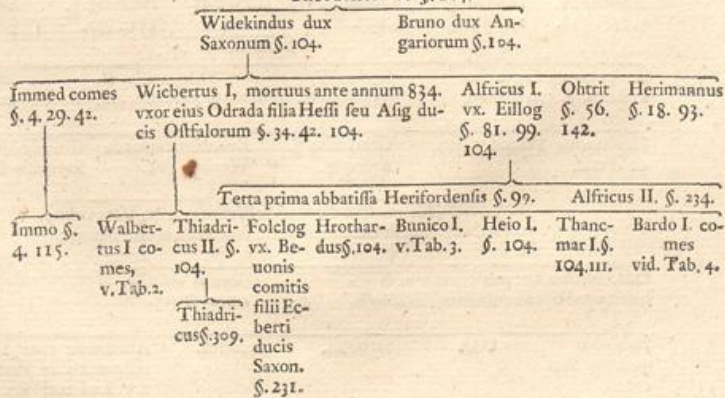 Widekindus dux
Saxonum §. 104.
Bruno dux An-
gariorum §.104.
Immed comes
§. 4. 29. 42.
Wicbertus I, mortuus ante annum 834.
vxor eius Odrada filia Hessi seu Asig du-
cis Ostfalorum §. 34. 42. 104.
Alfricus I.
vx. Eillog
§. 81. 99.
104.
Ohtrit
§. 56.
142.
Herimannus
§. 18. 93.
Tetta prima abbatissa Herifordensis §. 99.
Alfricus II. §. 234.
Immo §.
4. 115.
Walber-
tus I co-
mes,
v.Tab.2.
Thiadri-
cus II. §.
104.
Thiadri-
cus§.309.
Folclog
vx. Be-
uonis
comitis
filii Ec-
berti
ducis
Saxon.
§. 231.
Hrothar-
dus§.104.
Bunico I.
v.Tab. 3.
Heio I.
§. 104.
Thanc-
mar I.§.
104.111.
Bardo I. co-
mes
vid. Tab. 4.